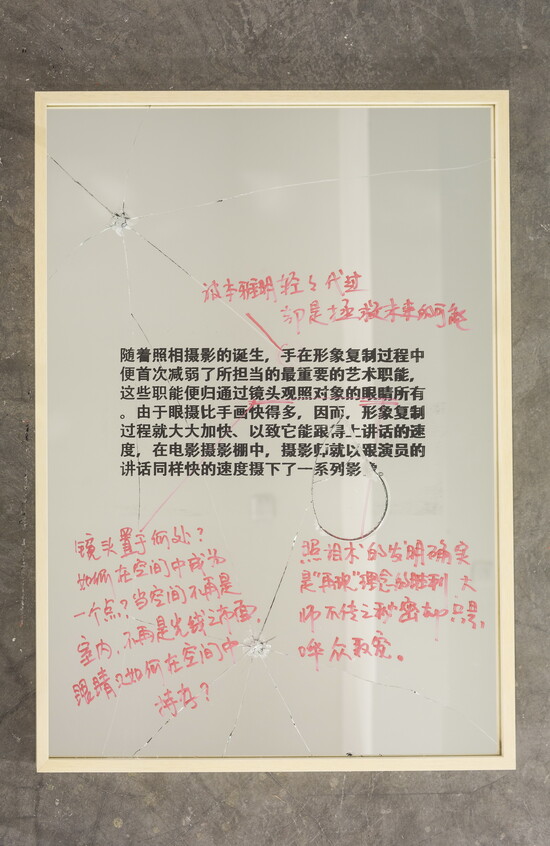 被本雅明轻々代过
却是拯救未来的可能
随着照相摄影的诞生，手在形象复制过程中
便首次减弱了所担当的最重要的艺术职能，
这些职能便归通过镜头观照对象的眼睛所有
。由于眼摄比手画快得多，因而，形象复制
过程就大大加快、以致它能跟得上讲话的速
度，在电影摄影棚中，摄影师就以跟演员的
讲话同样快的速度摄下了一系列影
镜头置于何处？
如何在空间中成为
一个点？当空间不再是
室内，不再是光线之布面，
眼睛又如何在空间中
持存？
照相术的发明确实
是“再现”理念的胜利，大
师不传之秘密却只是
哗众取宠。